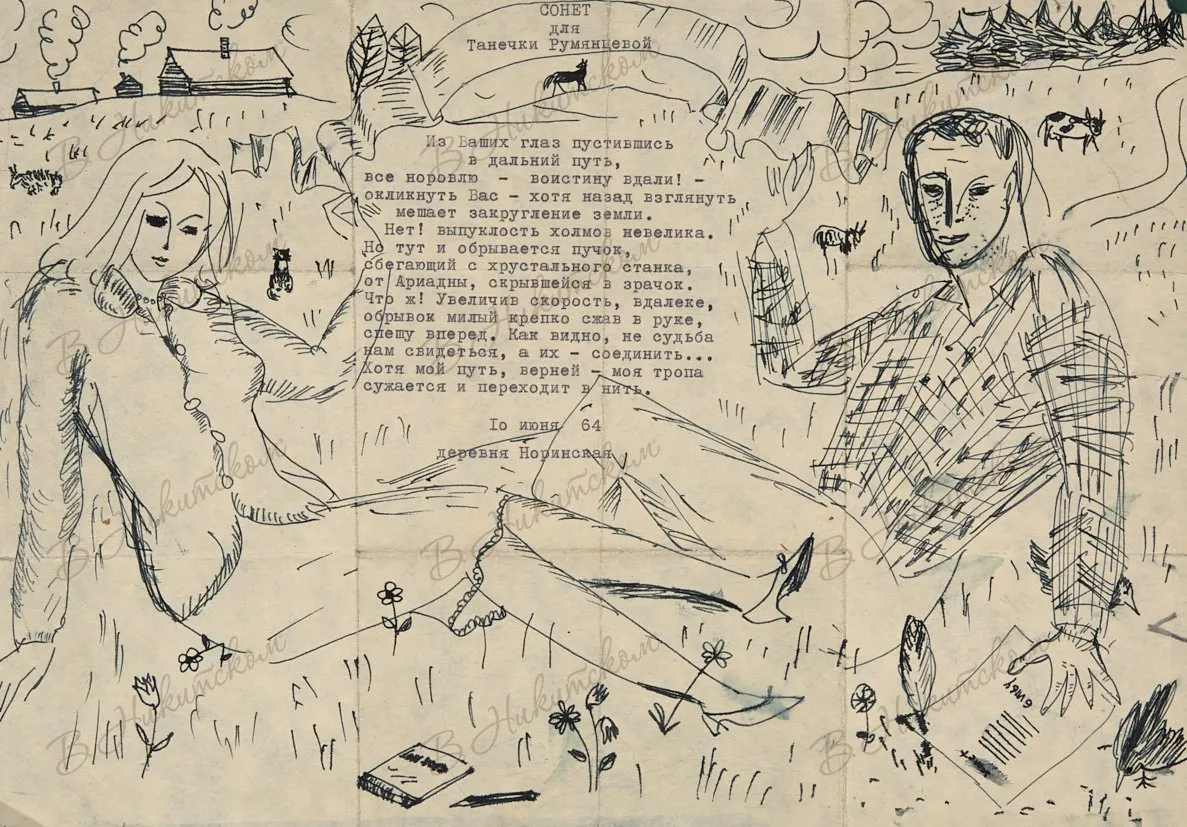 СОНЕТ
для
Танечки Румянцевой
Из Ваших глаз пустившись
в дальний путь,
все норовлю - воистину вдали! -
окликнуть Вас - хотя назад взглянуть
мешает закругление земли.
Нет! выпуклость холмов невелика.
Но тут и обрывается пучок,
сбегающий с хрустального станка,
от Ариадны, скрывшейся в зрачок.
Что ж! Увеличив скорость, вдалеке,
обрывок милый крепко сжав в руке,
спешу вперед. Как видно, не судьба
нам свидеться, а их - соединить...
Хотя мой путь, верней - моя тропа
сужается и переходит в нить.
Io июня 64
деревня Норинская
В Никитском